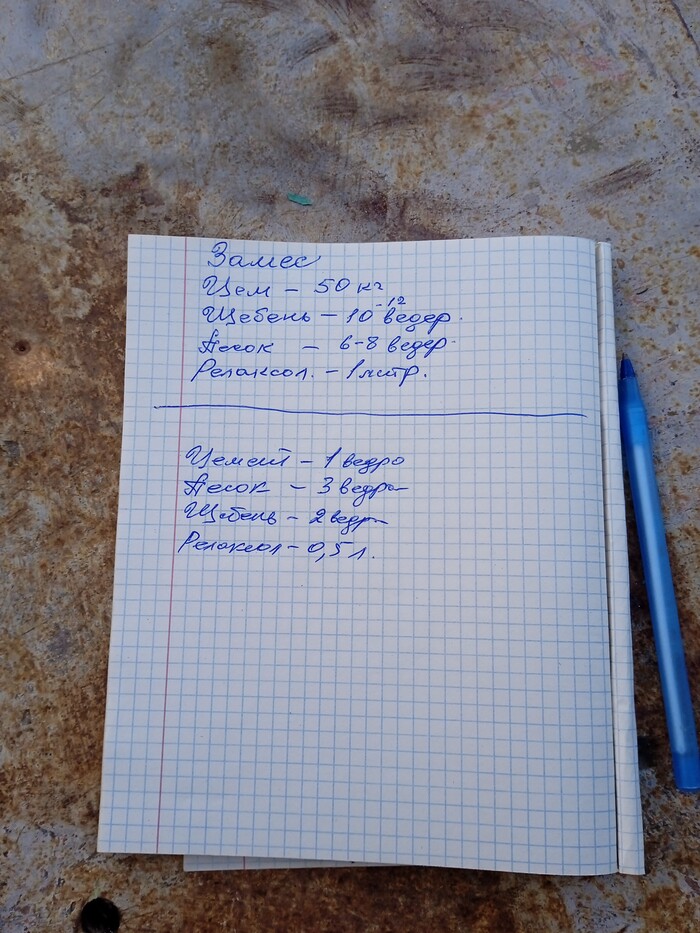 Замес
Цем – 50 кг
Щебень – 10-12 ведер.
Песок – 6-8 ведер
Релаксол. – 1 литр.
Цемент – 1 ведро
Песок – 3 ведра
Щебень – 2 ведра
Релаксол – 0,5 л.